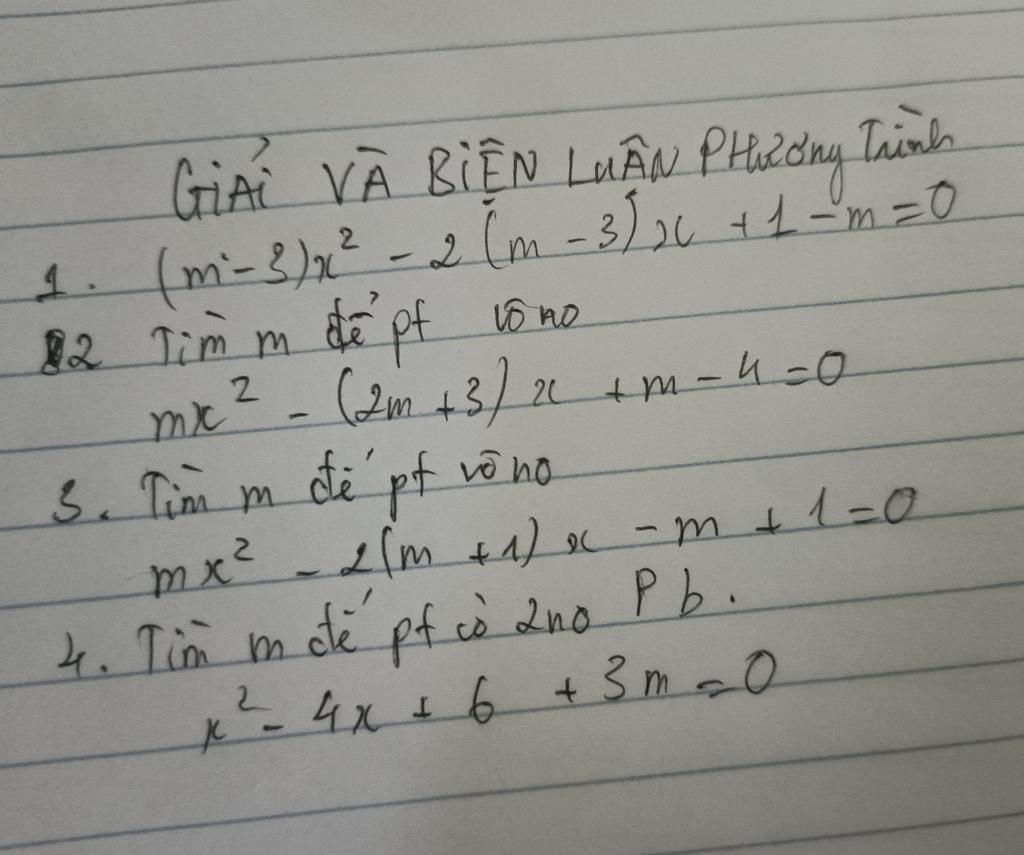 GIẢI VÀ BIỆN LUẬN PHƯƠNG Trình
1. (m-3)x² - 2(m-3)x + 1 - m = 0
2 Tìm m để pt vô no
mx² - (2m+3)x + m - 4 = 0
3. Tìm m để pt vô no
mx² - 2(m+1)x - m + 1 = 0
4. Tìm m để pt có 2no Pb.
x² - 4x + 6 + 3m = 0